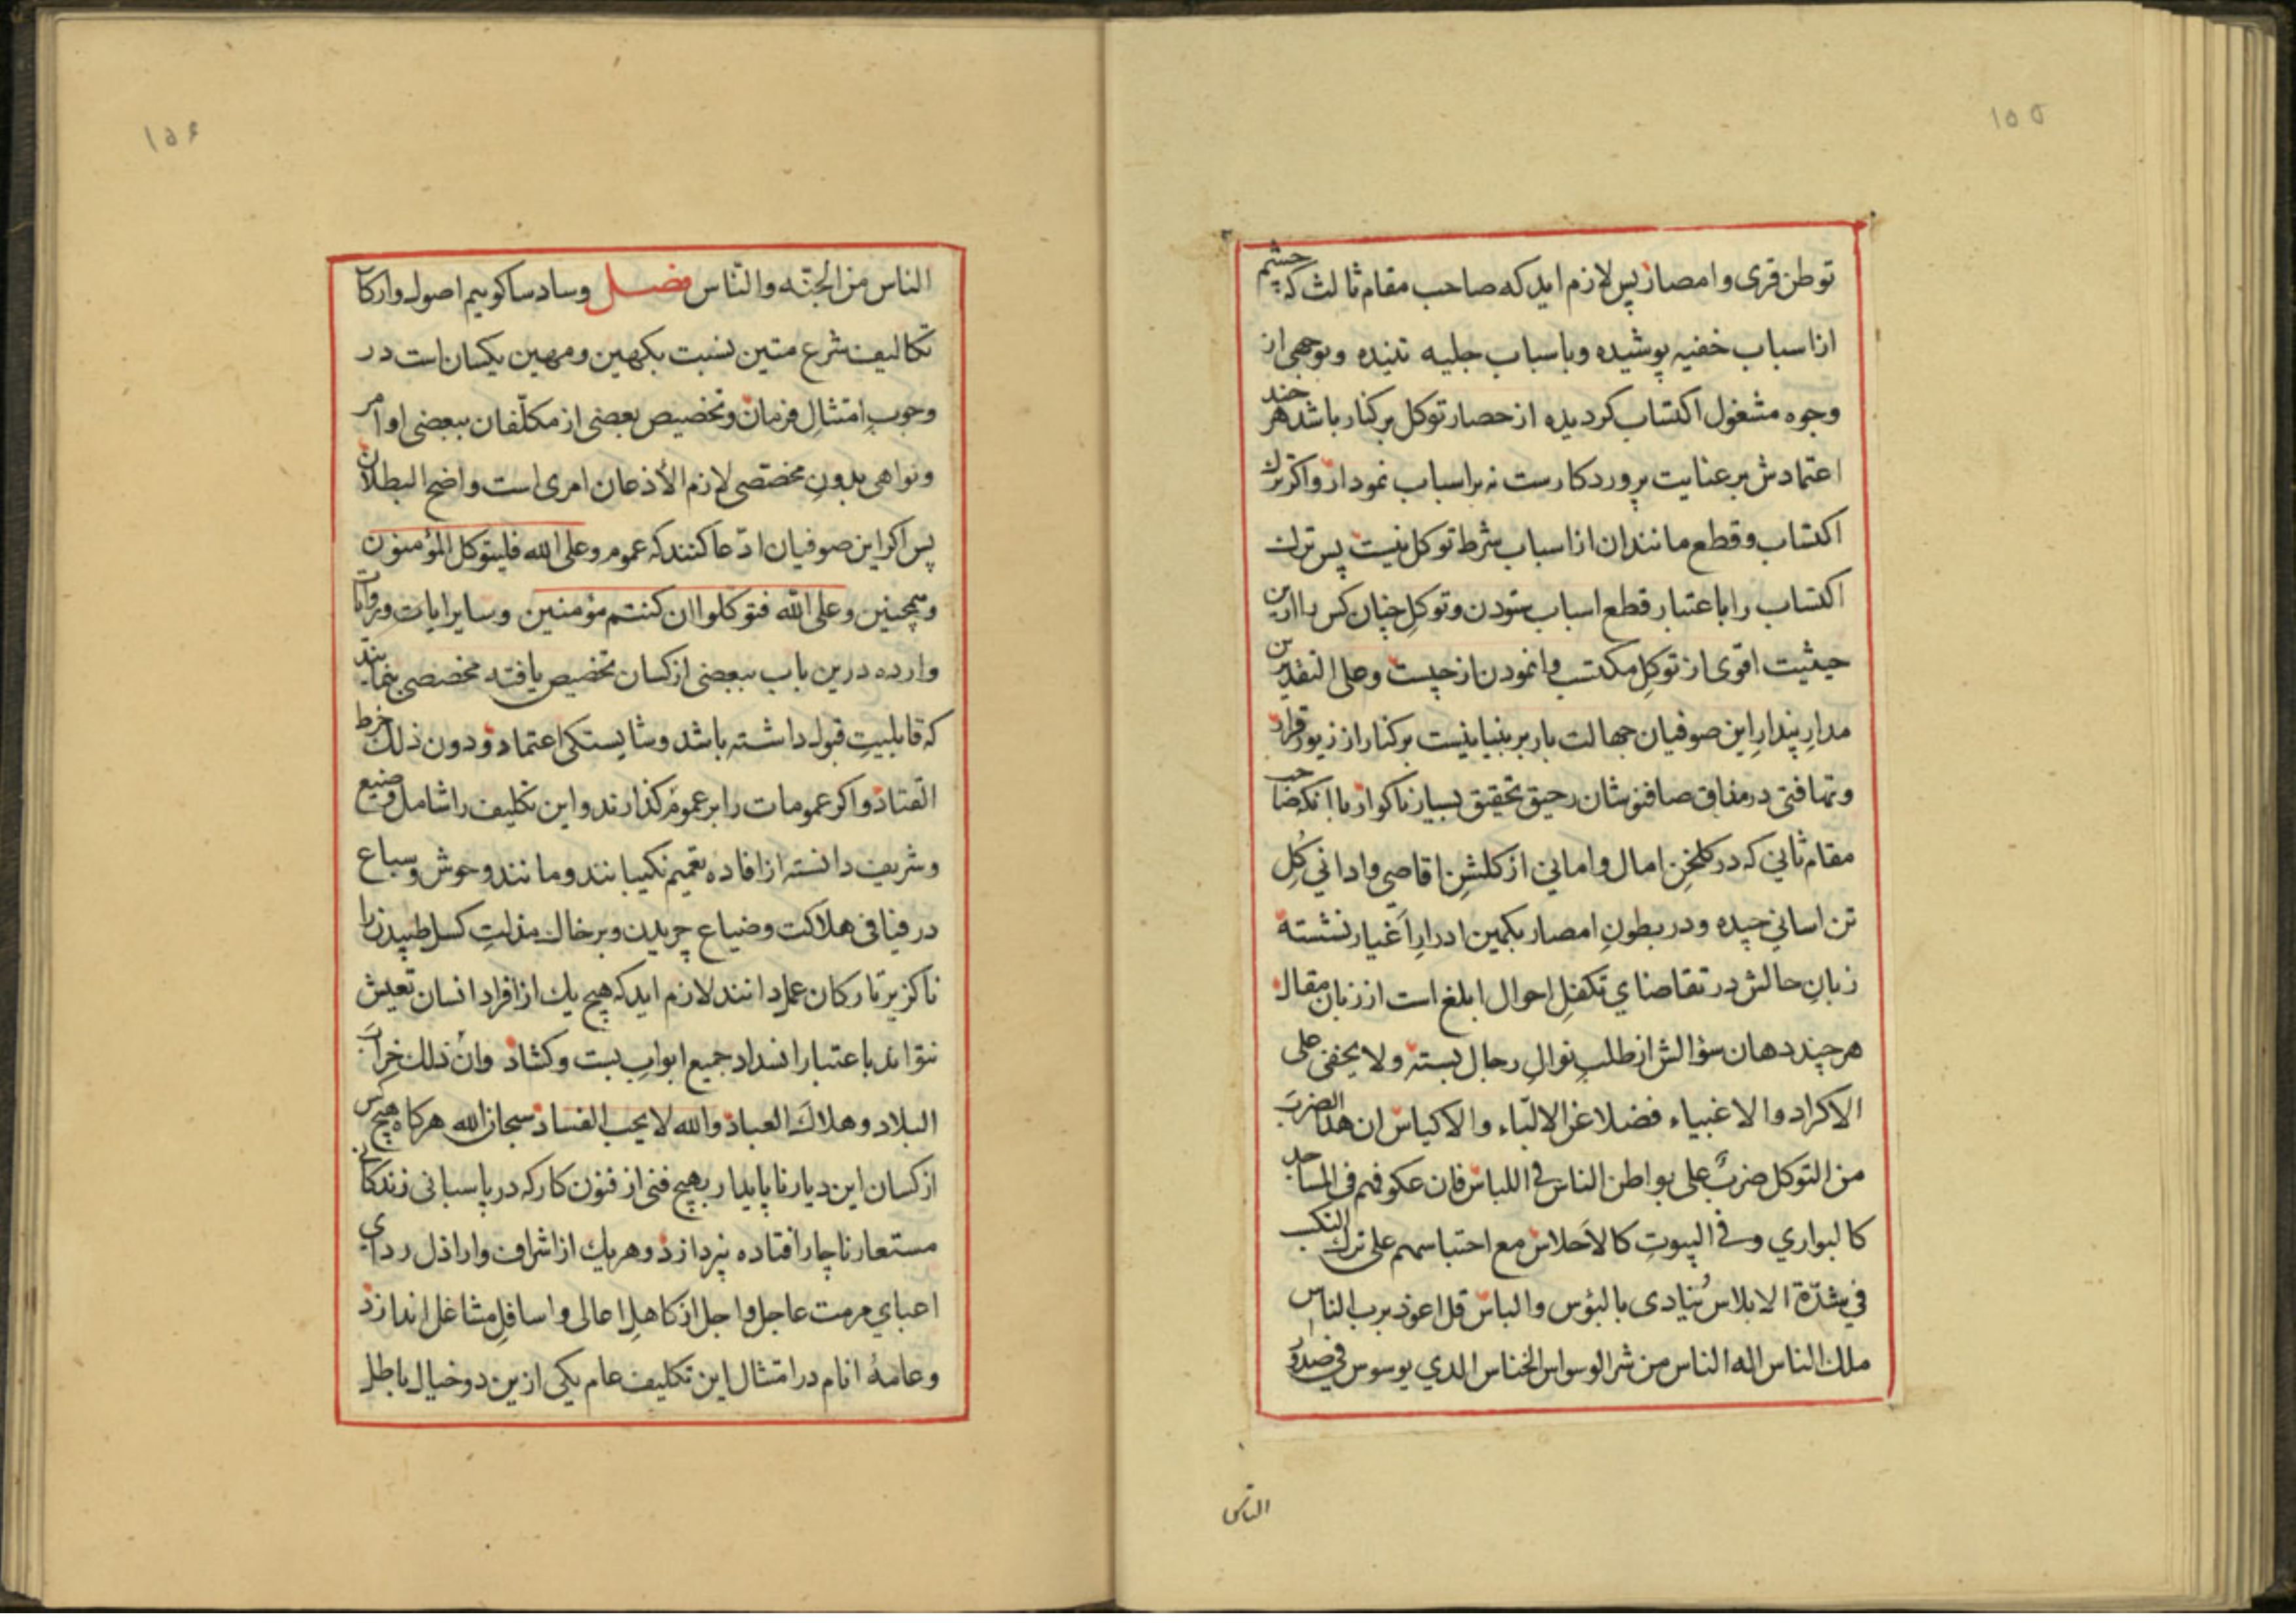 ۱۵۵
توطن قری و امصار پس لازم اید که صاحب مقام ثالث که چشم
از اسباب خفیه پوشیده و باسباب جلیه تنیده و بوجهی از
وجوه مشغول اکتساب کردیده از حصار توکل برکنار باشد هر چند
اعتمادش بر عنایت پروردکارست نه بر اسباب نمودار و اکر ترک
اکتساب و قطع مانند ان از اسباب شرط توکل نیست پس ترک
اکتساب را باعتبار قطع اسباب ستودن و توکلِ چنان کس را ازین
حیثیت اقوی از توکلِ مکتسب وانمودن از چیست و علی التقدیرین
مدارِ پندارِ این صوفیان جهالت بار بر بنیانیست برکنار از زیور قرار
و تهافتی در مذاق صافنوشان رحیق تحقیق بسیار ناکوار با انکه صاحب
مقام ثانی که در کلخنِ امال و امانی از کلشنِ اقاصی و ادانی کُلِ
تن اسانی چیده و در بطونِ امصار بکمین ادرارِ اَغیار نشسته
زبانِ حالش در تقاضای تکفلِ احوال ابلغ است از زبان مقال
هر چند دهان سؤالش از طلبِ نوالِ رجال بسته و لا یخفی علی
الاکراد و الاغبیاء فضلا عن الالبّاء و الاکیاس ان هذا الضربَ
من التوکل ضربٌ علی بواطن الناس فی اللباس فان عکوفهم فی المساجد
کالبواری و فی البیوتِ کالاَحلاس مع احتباسهم علی ترک التکسب
فی شدّة الابلاس یُنادی بالبؤس و الباس قل اعوذ برب الناس
ملک الناس اله الناس من شر الوسواس الخناس الذی یوسوس فی صدور
الناس
۱۵۶
الناس من الجنّه و النّاس فصل و سادسا کوییم اصول و ارکان
تکالیف شرع متین نسبت بکهین و مهین یکسان است در
وجوبِ امتثالِ فرمان و تخصیص بعضی از مکلّفان ببعضی اوامر
و نواهی بدونِ مخصّصی لازم الأذعان امری است واضح البطلان
پس اکر این صوفیان ادّعا کنند که عموم و علی الله فلیتوکل المؤمنون
و همچنین و علی الله فتوکلوا ان کنتم مؤمنین و سایر ایات و روایات
وارده درین باب ببعضی از کسان تخصیص یافته مخصصی بنمایند
که قابلیتِ قبول داشته باشد و شایستکی اعتماد و دون ذلک خرط
القتاد و اکر عمومات را بر عموم کذارند و این تکلیف را شامل وضیع
و شریف دانسته از افاده تعمیم نکیبانند و مانند وحوش و سباع
در فیافی هلاکت و ضیاع چریدن و بر خاک مذلتِ کسل طپیدن را
ناکزیر تارکان عمل دانند لازم اید که هیچ یک از افراد انسان تعیش
نتواند باعتبار انسداد جمیع ابوابِ بست و کشاد و انّ ذلک خرابَ
البلاد و هلاکَ العباد والله لا یحب الفساد سبحان الله هرکاه هیچ کس
از کسان این دیار ناپایدار بهیچ فنی از فنون کار که در پاسبانی زندکانی
مستعار ناچار افتاده نپردازد و هر یک از اشراف و اراذل ردای
اعبای مرمت عاجل و اجل از کاهلِ اعالی و اسافلِ مشاغل اندازد
و عامهٔ انام در امتثال این تکلیف عام یکی ازین دو خیال باطل